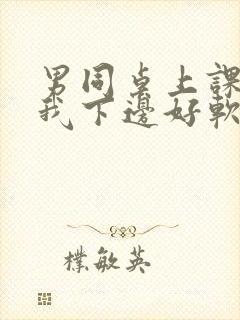 男同桌上課
我下邊好軟
樸敏英